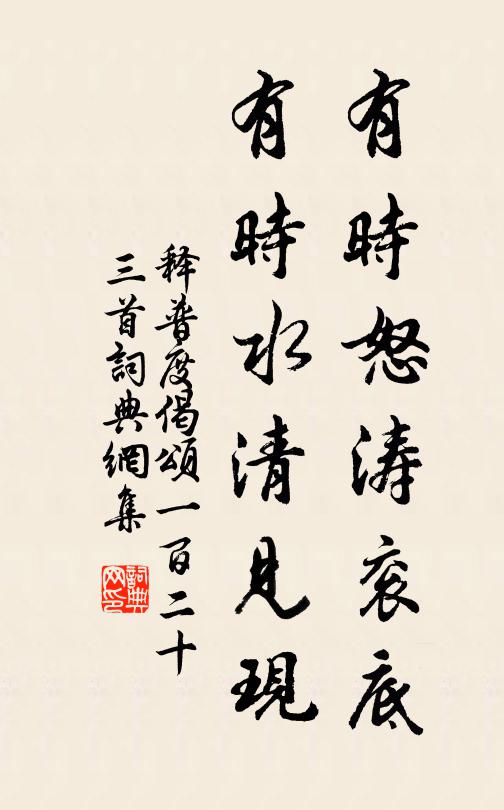 有時怒涛衮底
有時水清見現
释普度偈頌一百二十
三首詞典網集
詞典
网印